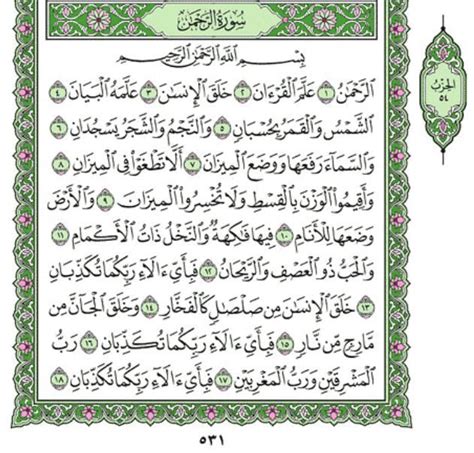 سُورَةُ الرَّحْمَٰن
بِسْمِ اللَّهِ الرَّحْمَٰنِ الرَّحِيمِ
الرَّحْمَٰنُ ۝١ عَلَّمَ الْقُرْءَانَ ۝٢ خَلَقَ الْإِنسَٰنَ ۝٣ عَلَّمَهُ الْبَيَانَ ۝٤
الشَّمْسُ وَالْقَمَرُ بِحُسْبَانٍ ۝٥ وَالنَّجْمُ وَالشَّجَرُ يَسْجُدَانِ ۝٦
وَالسَّمَاءَ رَفَعَهَا وَوَضَعَ الْمِيزَانَ ۝٧ أَلَّا تَطْغَوْا فِي الْمِيزَانِ ۝٨
وَأَقِيمُوا الْوَزْنَ بِالْقِسْطِ وَلَا تُخْسِرُوا الْمِيزَانَ ۝٩ وَالْأَرْضَ
وَضَعَهَا لِلْأَنَامِ ۝١٠ فِيهَا فَٰكِهَةٌ وَالنَّخْلُ ذَاتُ الْأَكْمَامِ ۝١١
وَالْحَبُّ ذُو الْعَصْفِ وَالرَّيْحَانُ ۝١٢ فَبِأَيِّ ءَالَاءِ رَبِّكُمَا تُكَذِّبَانِ
۝١٣ خَلَقَ الْإِنسَٰنَ مِن صَلْصَٰلٍ كَالْفَخَّارِ ۝١٤ وَخَلَقَ الْجَانَّ مِن
مَّارِجٍ مِّن نَّارٍ ۝١٥ فَبِأَيِّ ءَالَاءِ رَبِّكُمَا تُكَذِّبَانِ ۝١٦ رَبُّ
الْمَشْرِقَيْنِ وَرَبُّ الْمَغْرِبَيْنِ ۝١٧ فَبِأَيِّ ءَالَاءِ رَبِّكُمَا تُكَذِّبَانِ ۝١٨
الحزب
٥٤
٥٣١